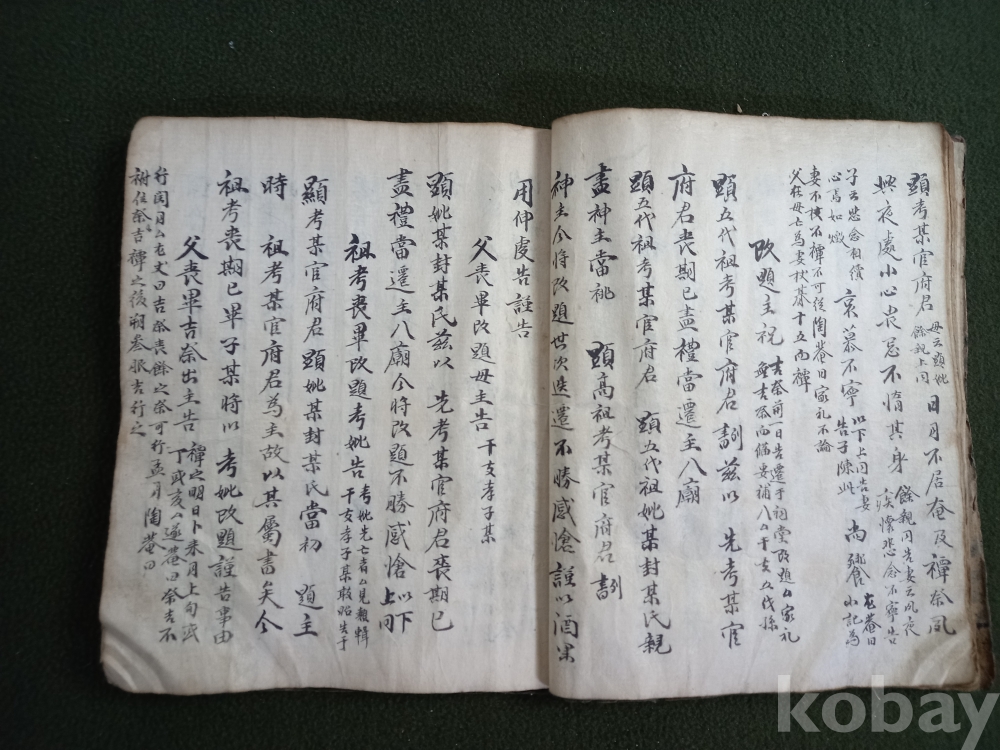 顯考某官府君 母云顯妣 餘親上同 日月不居奄及禫祭夙
興夜處小心畏忌不惰其身 餘親同告妻云夙夜 疚懷悲念不寧告
子云悲念相續 心焉如燬 哀慕不寧 以下上同告妻 告子陳此 尚饗 尤菴曰 小記爲
妻不杖不禫不可從陶菴曰家礼不論
父在母亡爲妻杖朞十五而禫
改題主祝 吉祭前一日告遷于祠堂改題 家礼 無吉祭而 干支五代孫
顯五代祖考某官府君 列 玆以 先考某官
府君喪期已盡禮當遷主入廟
顯五代祖考某官府君 顯五代祖妣某封某氏親
盡神主當祧 顯高祖考某官府君 列
神主今將改題世次迭遷不勝感愴謹以酒果
用伸虔告謹告
父喪畢改題母主告 干支孝子某
顯妣某封某氏玆以 先考某官府君喪期已
盡禮當遷主入廟今將改題不勝感愴 以下 上同
祖考喪畢改題考妣告 考妣先亡者 見 輯 干支孝子某敢昭告于
顯考某官府君 顯妣某封某氏當初 題主
時 祖考某官府君爲主故以其屬書矣今
祖考喪期已畢子某將以 考妣改題謹告事由
父喪畢吉祭出主告 禫之明日卜來月上旬或 丁或亥 遂菴曰祭吉不
行閏月 尤丈曰吉祭喪餘之祭可行孟月陶菴曰
祔位祭吉禫之後朔參 吉行之